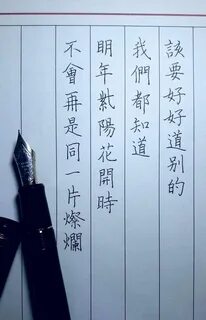 該要好好道別的
我們都知道
明年紫陽花開時
不會再是同一片燦爛